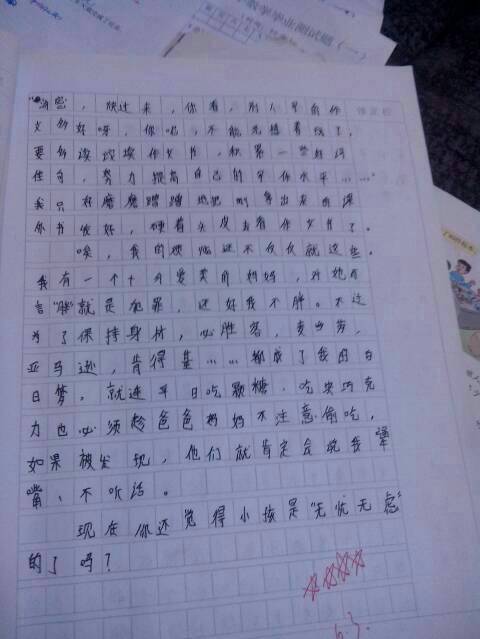 数学毕业测试题（一）
，快过来，你看，别人写的作
文多好呀，你呢，不能光想着玩了，
要多读读作文书，积累一些好词
佳句，努力提高自己的写作水平……”
我只好磨磨蹭蹭地把刚拿出来的课
外书放好，硬着头皮去看作文书了。
唉，我的烦恼还不仅仅就这些。
我有一个十分爱美的妈妈，对她而
言“胖”就是犯罪，还好我不胖。不过
为了保持身材，必胜客，麦当劳，
亚马逊，肯得基……都成了我的白
日梦。就连平日吃颗糖，吃块巧克
力也必须趁爸爸妈妈不注意偷吃，
如果被发现，他们就肯定会说我
嘴、不听话。
现在你还觉得小孩是“无忧无虑”
的了吗？